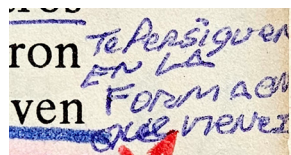 ros
ron
ven
Te Persiguen
EN LA
Forma en
que vienez